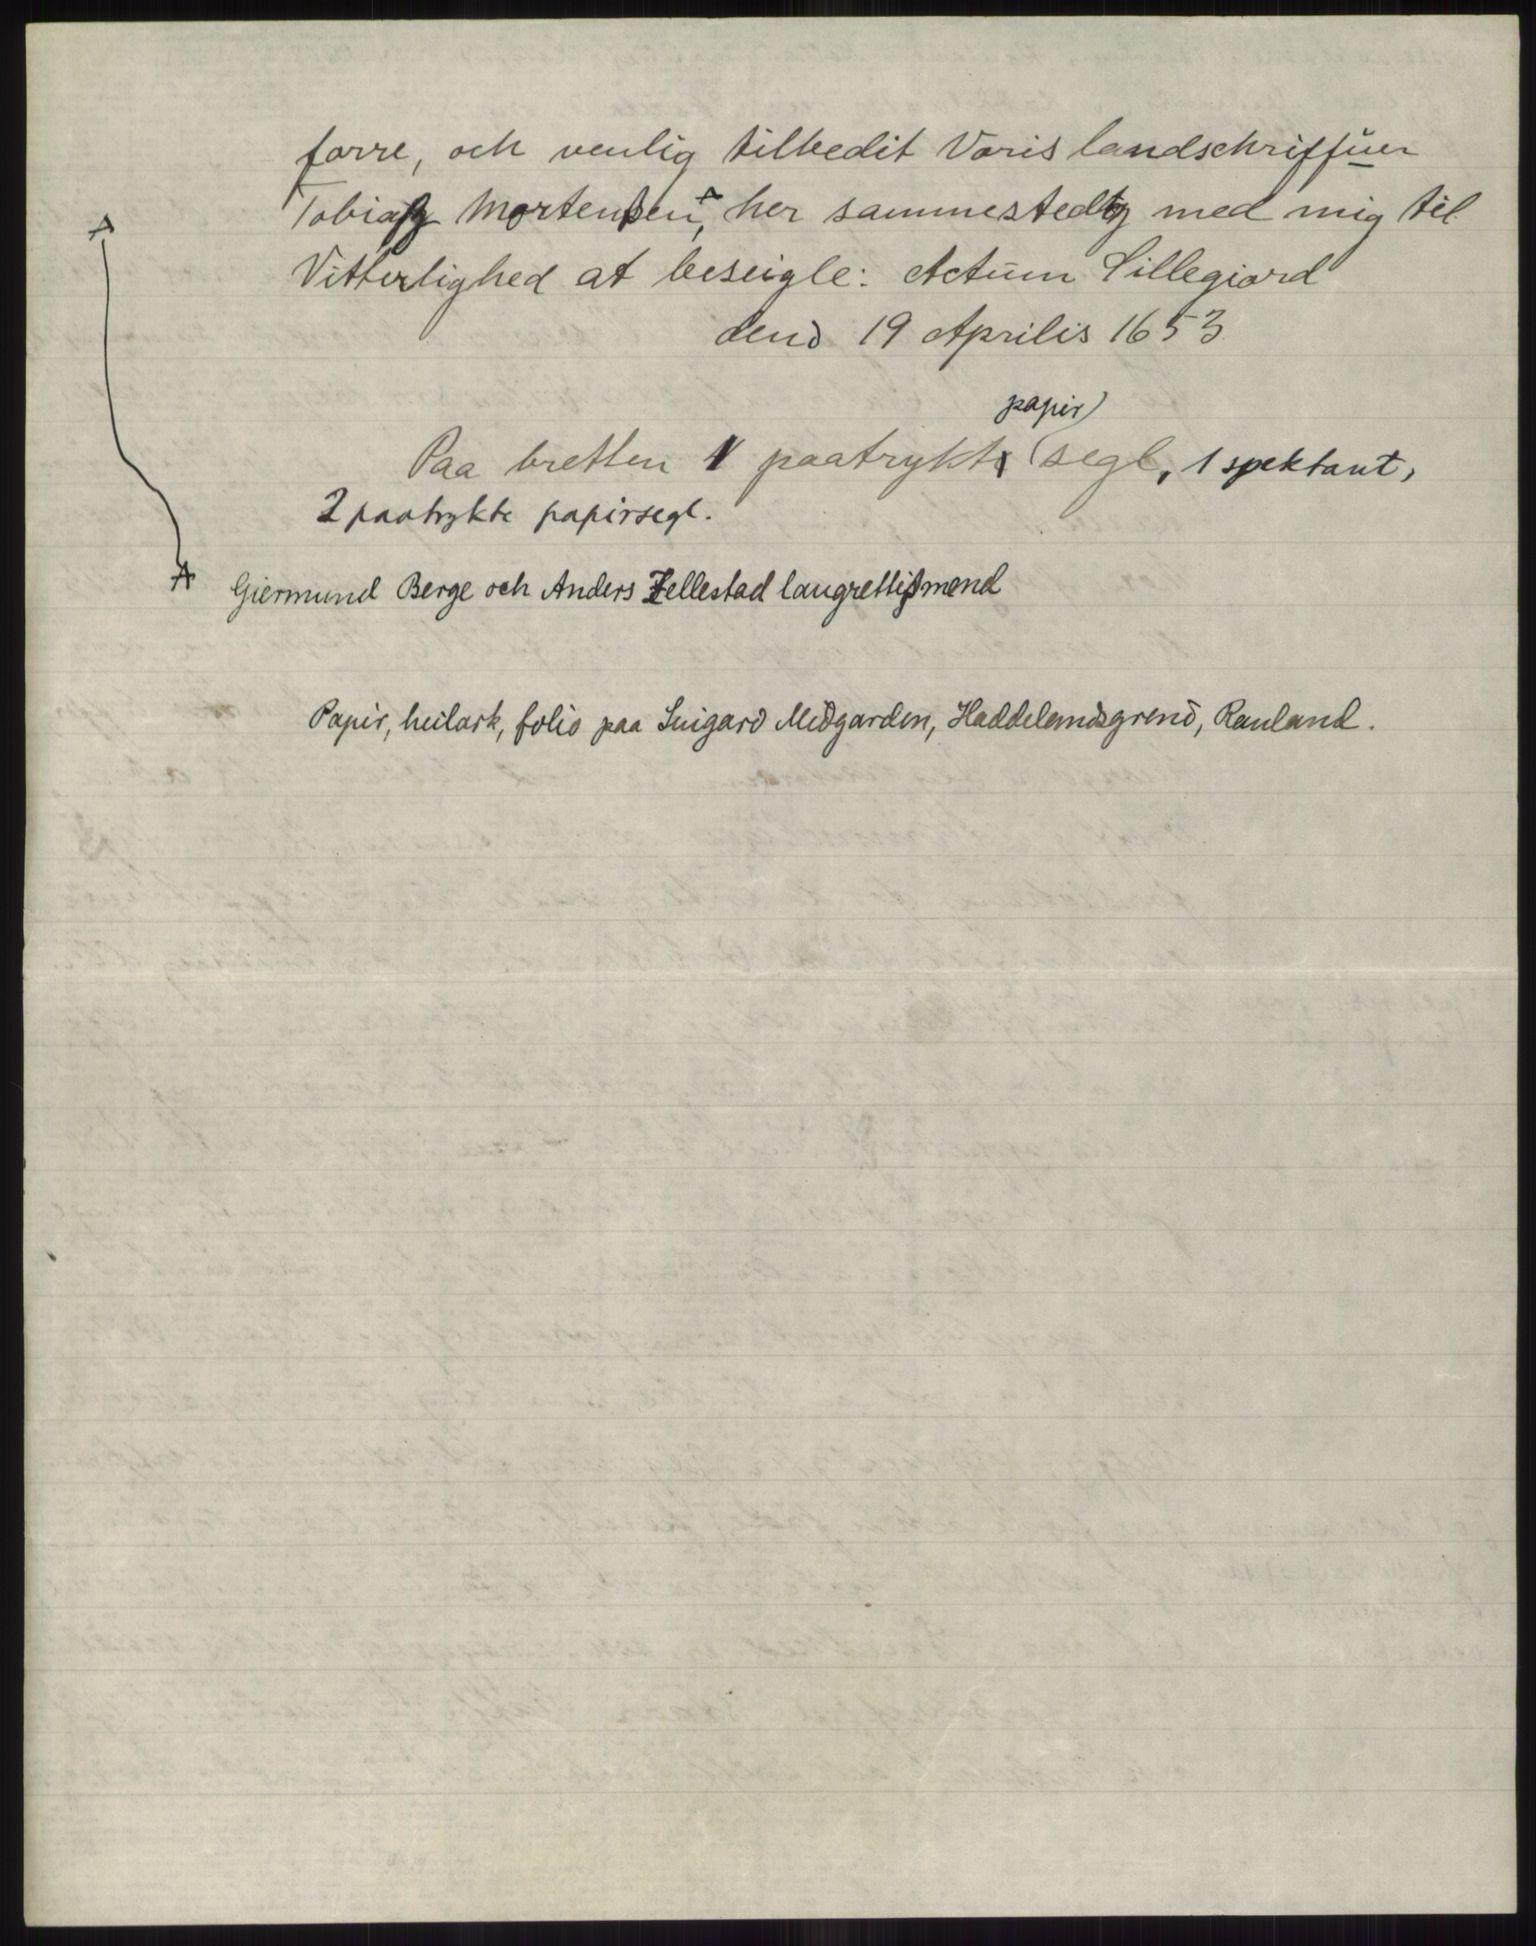 forre, och venlig tilbedit Voris landschriffŭer
Tobiaß Mortenßen, her sammestedtz med mig til
Vitterlighed at beseigle: Actŭm Lillegiord
dend 19 Aprilis 1653
papir
Paa bretten 1 paatrykt segl, 1 spektant,
2 paatrykte papirsegl.
Giermund Berge och Anders Zellestad laugrettißmend
Papir, heilark, folio paa Luigard Midgarden, Haddelandsgrend, Rauland.